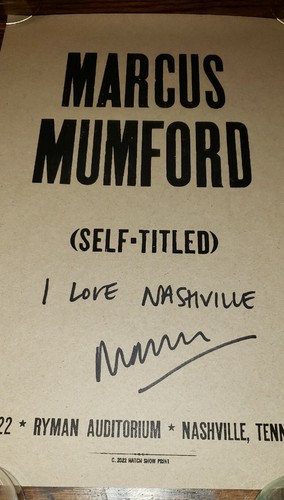 MARCUS
MUMFORD
(SELF-TITLED)
I LOVE NASHVILLE
Marcus
22 * RYMAN AUDITORIUM * NASHVILLE, TENN
C. 2022 HATCH SHOW PRINT